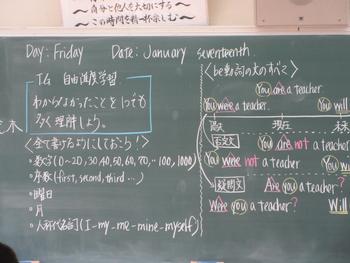 〜自分と他人を大切にする〜
〜この時間を精一杯楽しむ〜
Day: Friday Date: January seventeenth.
TG 自由進度学習
わからなかったことを1つでも
多く理解しよう。
<全て書けるようにしておこう!>
・数字(0~20,30,40,50,60,70,~100,1000)
・序数(first, second, third …)
・曜日
・月
・人称代名詞(I-my-me-mine-myself)
<be動詞の文のすべて>
You are a teacher
You were a teacher.
You will
過去
現在
未来
否定文
You are not a teacher.
You were not a teacher.
You
疑問文
Are you a teacher?
Were you a teacher?
Will